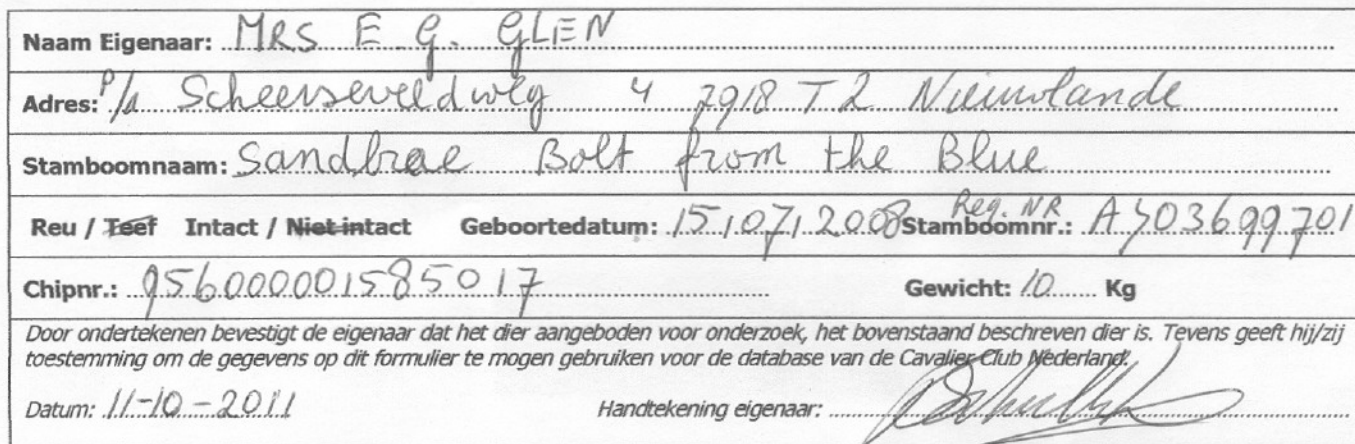 Naam Eigenaar: MRS E G. GLEN
Adres: P/a Scheerseveldweg 4 7918 TZ Nieuwlande
Stamboomnaam: Sandbrae Bolt from the Blue
Reu / Teef Intact / Niet intact Geboortedatum: 15/07/2008 Reg. NR Stamboomnr.: AJ03699701
Chipnr.: 956000001585017 Gewicht: 10 Kg
Door ondertekenen bevestigt de eigenaar dat het dier aangeboden voor onderzoek, het bovenstaand beschreven dier is. Tevens geeft hij/zij
toestemming om de gegevens op dit formulier te mogen gebruiken voor de database van de Cavalier Club Nederland.
Datum: 11-10-2011 Handtekening eigenaar: